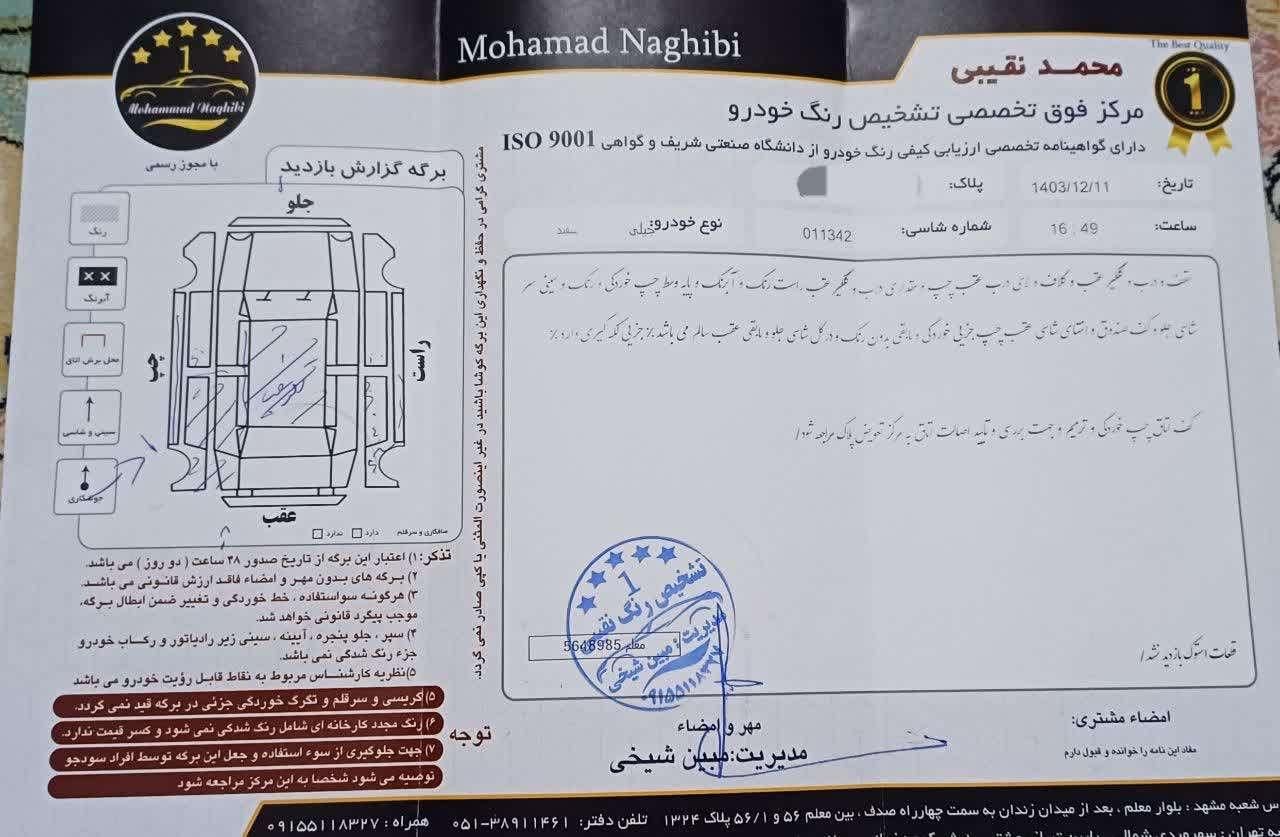 Mohamad Naghibi
The Best Quality
محمد نقیبی
1
1
Mohammad Naghibi
مرکز فوق تخصصی تشخیص رنگ خودرو
دارای گواهینامه تخصصی ارزیابی کیفی رنگ خودرو از دانشگاه صنعتی شریف و گواهی ISO 9001
با مجوز رسمی
برگه گزارش بازدید
تاریخ: 1403/12/11
پلاک:
ساعت: 16:49
شماره شاسی: 011342
نوع خودرو: جیلی سفید
جلو
چپ
راست
عقب
رنگ
آبرنگ
محل برش اتاق
سینی و شاسی
جوشکاری
صافکاری و سرقلم دارد ندارد
مشتری گرامی در حفظ و نگهداری این برگه کوشا باشید در غیر اینصورت المثنی یا کپی صادر نمی گردد.
سقف و درب و گلگیر عقب و گلاف و لای درب عقب چپ و مقداری درب و گلگیر عقب راست رنگ و آبرنگ و پایه وسط چپ خوردگی و رنگ و سینی سر
شاسی جلو و کف صندوق و انتهای شاسی عقب چپ جزیی خوردگی و مابقی بدون رنگ و در کل شاسی جلو و مابقی عقب سالم می باشد٪ جزیی لکه گیری دارد٪
کف اتاق چپ خوردگی و ترمیم و جهت بررسی و تأیید اصالت اتاق به مرکز تعویض پلاک مراجعه شود/
قطعات استوک بازدید نشد/
تذکر: ۱) اعتبار این برگه از تاریخ صدور ۴۸ ساعت ( دو روز ) می باشد.
۲) برگه های بدون مهر و امضاء فاقد ارزش قانونی می باشد.
۳) هرگونه سوءاستفاده ، خط خوردگی و تغییر ضمن ابطال برگه،
موجب پیگرد قانونی خواهد شد.
۴) سپر ، جلو پنجره ، آیینه ، سینی زیر رادیاتور و رکاب خودرو
جزء رنگ شدگی نمی باشد.
۵) نظریه کارشناس مربوط به نقاط قابل رؤیت خودرو می باشد
توجه
۵) گریسی و سرقلم و تگرگ خوردگی جزئی در برگه قید نمی گردد.
۶) رنگ مجدد کارخانه ای شامل رنگ شدگی نمی شود و کسر قیمت ندارد.
۷) جهت جلوگیری از سوء استفاده و جعل این برگه توسط افراد سودجو
توصیه می شود شخصا به این مرکز مراجعه شود
1
تشخیص رنگ نقیبی
مدیریت: مبین شیخی
۰۹۱۵۵۱۱۸۳۲۷
معلم 5648985
مهر و امضاء
مدیریت: مبین شیخی
امضاء مشتری:
مفاد این نامه را خوانده و قبول دارم
س شعبه مشهد : بلوار معلم ، بعد از میدان زندان به سمت چهارراه صدف ، بین معلم ۵۶ و ۵۶/۱ پلاک ۱۳۲۴ تلفن دفتر: ۰۵۱-۳۸۹۱۱۴۶۱ همراه : ۰۹۱۵۵۱۱۸۳۲۷